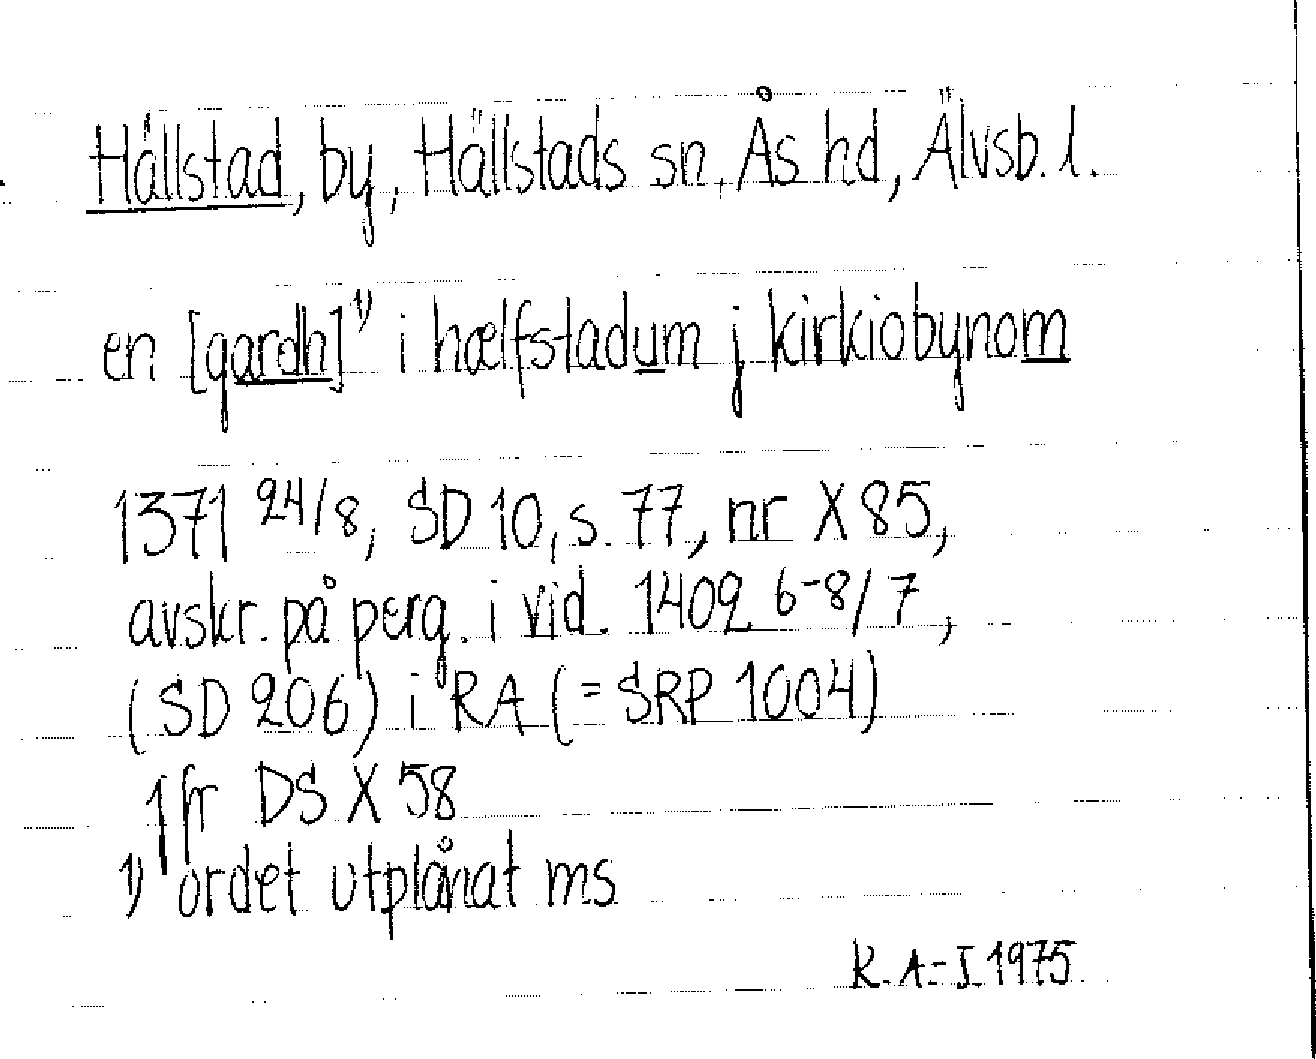 Hällstad, by, Hällstads sn, Ås hd, Älvsb. l.
en [gardh]¹⁾ i hælfstadum j kirkiobynom
1371 24/8, SD 10, s. 77, nr X 85,
avskr. på perg. i vid. 1409 6-8/7,
(SD 206) i RA (= SRP 1004)
Jfr DS X 58
1) ordet utplånat ms
K. A-I. 1975